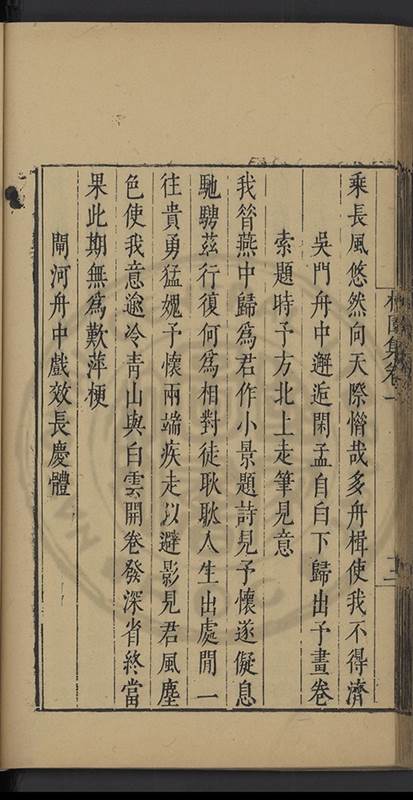 乘長風悠然向天際㦧哉多舟楫使我不得濟
吳門舟中邂逅閑孟自白下歸出予畫卷
索題時予方北上走筆見意
我昝燕中歸爲君作小景題詩見予懷遂儗息
馳騁茲行復何爲相對徒耿耿人生出處閒一
往貴勇猛媿予懷兩端疾走以避影見君風塵
色使我意逾冷青山與白雲開卷發深省終當
果此期無爲歎萍梗
閘河舟中戲效長慶體
集卷一